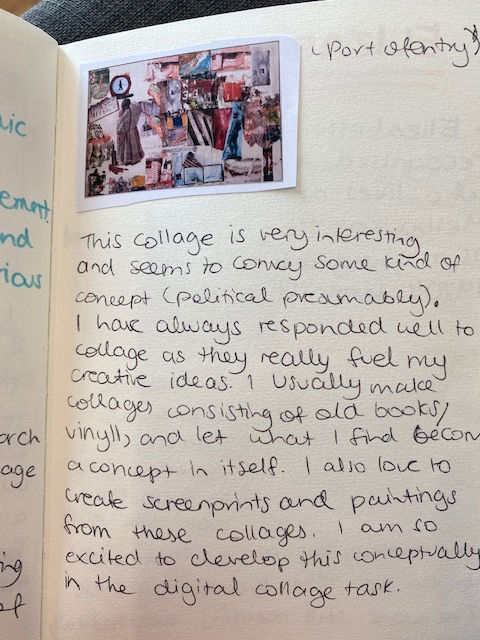 (Port of entry)
uic
ement
nd
ious
orch
age
ing
of
This collage is very interesting
and seems to convey some kind of
concept (political presumably).
I have always responded well to
collage as they really fuel my
creative ideas. I usually make
collages consisting of old books/
vinyl, and let what I find becom
a concept in itself. I also love to
create screenprints and paintings
from these collages. I am so
excited to develop this conceptually
in the digital collage task.